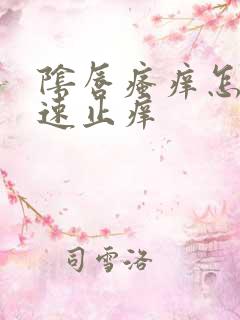 陰唇瘙痒怎
速止痒
司雪洛